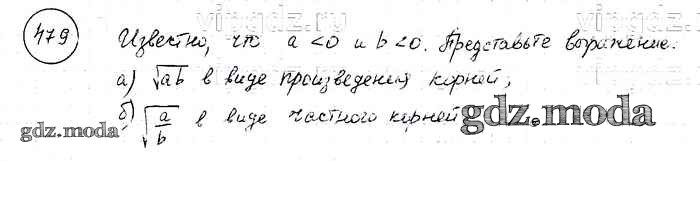 vipgdz.com vipgdz.com
479 Известно, что a < 0 и b < 0. Представьте выражение:
а) √ab в виде произведения корней;
б) √a/b в виде частного корней
gdz.moda
gdz.moda